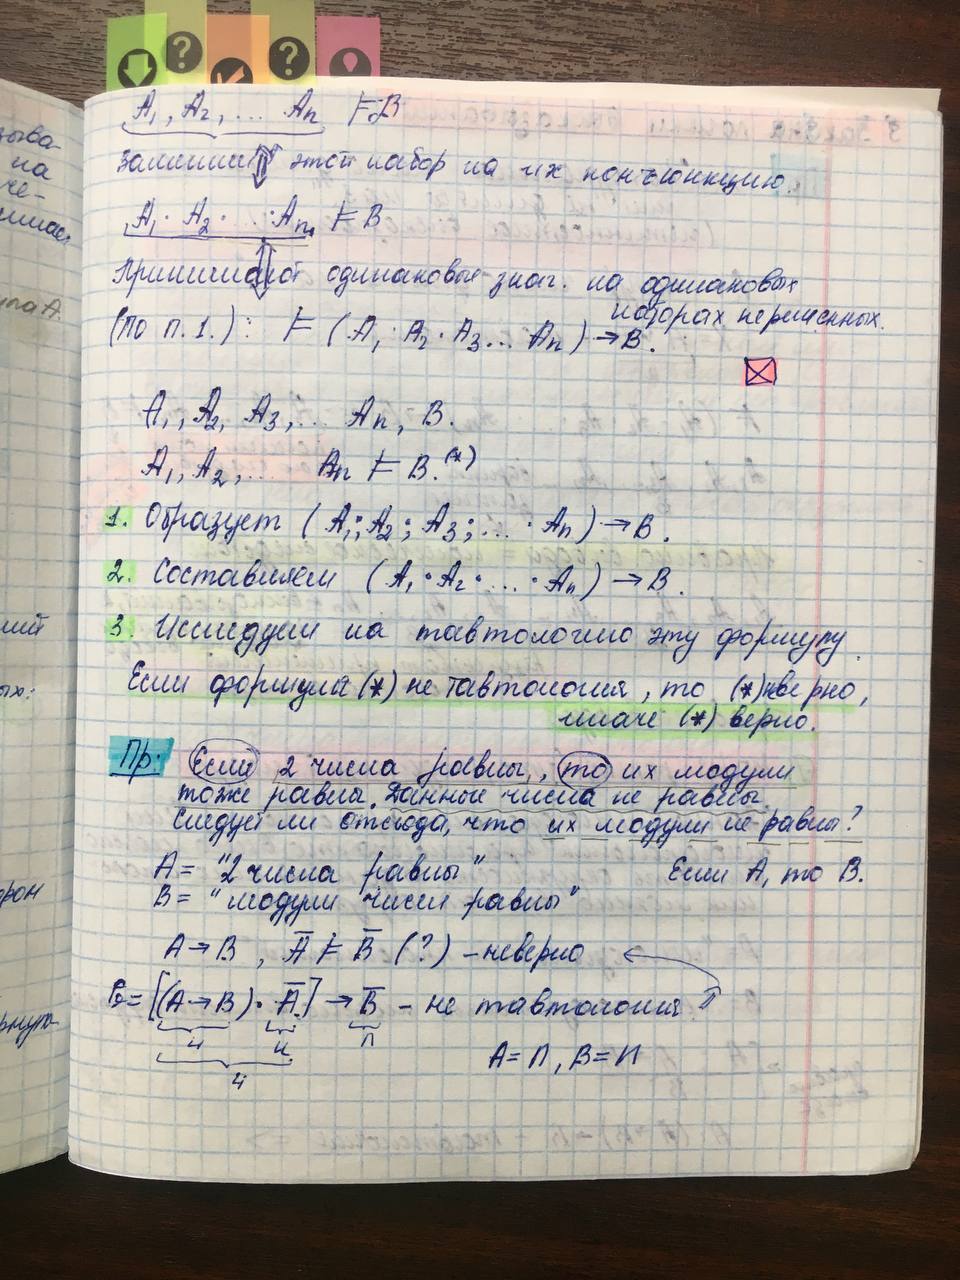 A₁, A₂, ... Aₙ ⊨ B
Заменим этот набор на их конъюнкцию.
A₁ · A₂ · ... · Aₙ ⊨ B
Принимают одинаковые знач. на одинаковых
наборах переменных.
(По п. 1.): ⊨ (A₁ · A₂ · A₃ ... Aₙ) → B.
A₁, A₂, A₃, ... Aₙ, B.
A₁, A₂, ... Aₙ ⊨ B. (*)
1. Образует (A₁; A₂; A₃; ... · Aₙ) → B.
2. Составляем (A₁ · A₂ · ... · Aₙ) → B.
3. Исследуем на тавтологию эту формулу.
Если формула (*) не тавтология, то (*) неверно,
иначе (*) верно.
Пр: Если 2 числа равны, то их модули
тоже равны. Данные числа не равны.
Следует ли отсюда, что их модули не равны?
A = "2 числа равны" Если A, то B.
B = "модули чисел равны"
A → B, A̅ ⊨ B̅ (?) – неверно
= [(A → B) · A̅] → B̅ – не тавтология
и и л
и
A = Л, B = И